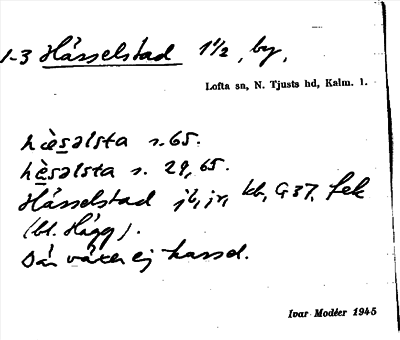 1-3 Hässelstad 1 1/2, by,
Lofta sn, N. Tjusts hd, Kalm. l.
hèsəlsta s. 65.
hèsəlsta s. 29, 65.
Hässelstad jb, jr, kb, G 37, fek
(bl. Hägg).
Där växer ej hassel.
Ivar Modéer 1945